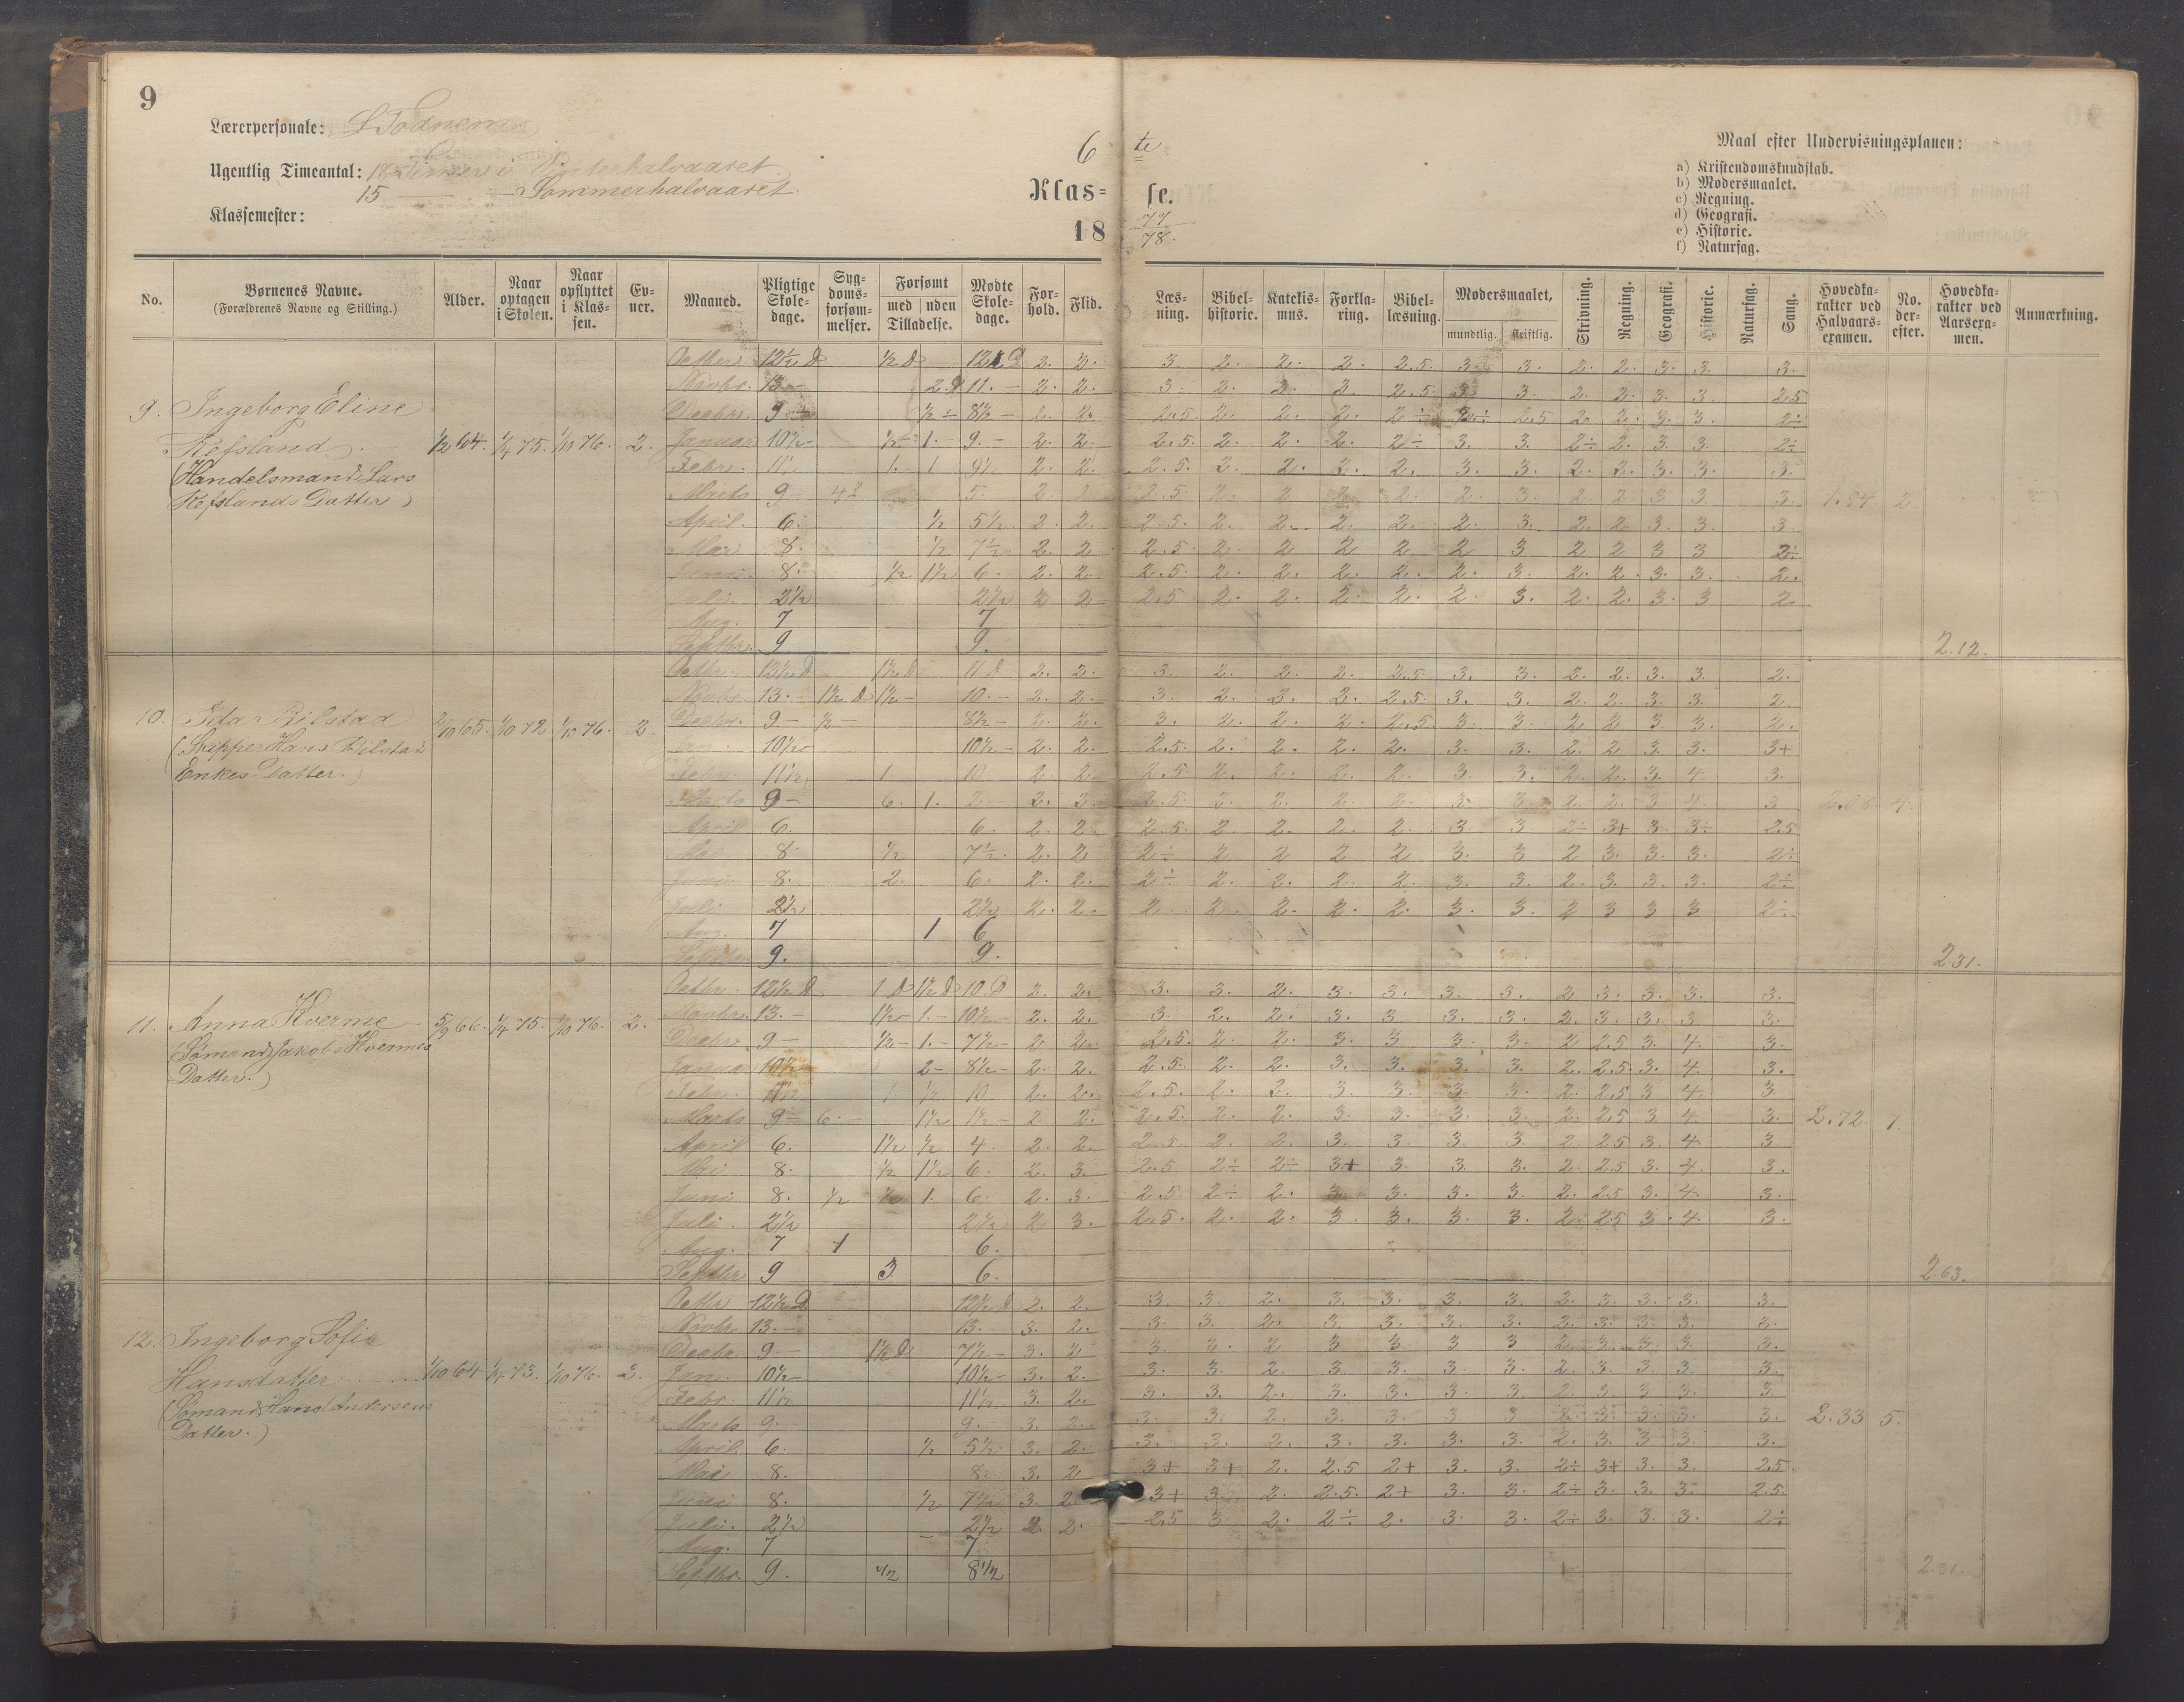 9
Lærerpersonale: S Todnem
Ugentlig Timeantal: 18 Timer i Vinterhalvaaret.
15 — — Sommerhalvaaret.
Klassemester:
6 te
Klas= se.
18 77/78.
Maal efter Undervisningsplanen:
a) Kristendomskundskab.
b) Modersmaalet.
c) Regning.
d) Geografi.
e) Historie.
f) Naturfag.
No. Børnenes Navne. (Forældrenes Navne og Stilling.) Alder. Naar optagen i Skolen. Naar opflyttet i Klassen. Evner. Maaned. Pligtige Skoledage. Sygdomsforsømmelser. Forsømt med uden Tilladelse. Mødte Skoledage. Forhold. Flid. Læsning. Bibelhistorie. Katekismus. Forklaring. Bibellæsning. Modersmaalet, mundtlig. skriftlig. Skrivning. Regning. Geografi. Historie. Naturfag. Sang. Hovedkarakter ved Halvaarsexamen. No. derefter. Hovedkarakter ved Aarsexamen. Anmærkning.
Octbr. 12½ D ½ D 12 D 2. 2. 3. 2. 2. 2. 2.5. 3. 3. 2. 2. 3. 3. 3.
Novbr. 13 — 2 D 11. — 2. 2. 3. 2. 2. 2. 2.5 3 3. 2. 2. 3. 3. 2.5
9. Ingeborg Eline
Decbr. 9 — ½ — 8½ — 2. 2. 2.5. 2. 2. 2. 2÷ 2.5 2. 2. 3. 3. 2÷
Refsland. ½ 64. ¼ 75. 1/10 76. 2. Januar 10½ — ½ — 1. — 9. — 2. 2. 2.5. 2. 2. 2. 2÷ 3. 3. 2÷ 2. 3. 3. 2÷
(Handelsmand Lars
Febr. 11½ 1. 1 9½ 2. 2. 2.5. 2. 2. 2. 2. 3. 3. 2. 2. 3. 3. 3.
Refslands Datter.)
Marts 9 — 4 5. 2. 2.5 2. 2. 2. 2. 2. 3. 2. 2. 3 3. 3. 1.94 2
April. 6. ½ 5½ 2. 2. 2.5. 2. 2. 2. 2. 2. 3. 2. 2. 3. 3. 3.
Mai. 8. ½ 7½ 2. 2 2.5. 2. 2 2 2 2 3 2 2 3 3 2÷
Juni. 8. ½ 1½ 6. 2. 2. 2.5. 2. 2. 2. 2. 2. 3. 2. 2. 3. 3. 2.
Juli. 2½ 2½ 2 2 2.5 2. 2. 2. 2. 2. 3. 2. 2. 3. 3 2
Aug. 7 7
Septbr. 9 9. 2.12.
Octbr. 12½ D 1½ D 11 D 2. 2. 3. 2. 2. 2. 2.5. 3. 3. 2. 2. 3. 3. 2.
Novbr. 13. — 1½ D 1½ — 10. — 2. 2. 3. 2. 2. 2. 2.5. 3. 3. 2. 2. 3. 3. 2.
10. Ida Bilstad 2/10 65. 1/10 72 1/10 76. 2. Decbr. 9 — ½ — 8½ — 2. 2. 3. 2. 2. 2. 2.5 3. 3. 2 2 3 3. 2.
(Skipper Hans Bilstads
Jan. 10½ 10½ — 2. 2. 2.5. 2. 2. 2. 2. 3. 3. 2. 2 3. 3. 3+
Enkes Datter.)
Febr. 11½ 1 10 2. 2. 2.5. 2. 2. 2. 2. 3. 3. 2. 2. 3. 4. 3.
Marts 9 — 6. 1. 2 — 2. 2. 2.5. 2. 2. 2. 2. 3. 3. 2. 2. 3 4. 3 2.08 4.
April 6. 6. 2. 2. 2.5. 2 2. 2. 2. 3. 3. 2÷ 3+ 3. 3÷ 2.5
Mai. 8 ½ 7½. 2. 2 2÷ 2 2 2 2 3. 3 2 3. 3. 3. 2÷
Juni. 8. 2. 6. 2. 2. 2÷ 2. 2. 2. 2. 3. 3. 2. 3. 3. 3. 2÷
Juli 2½ 2½ 2. 2. 2 2. 2. 2. 2. 3. 3. 2 3 3 3 2÷
Aug. 7 1 6
Septbr. 9. 9. 2.31.
Octbr. 12½ D 1 D 1½ D 10 D 2. 2. 3. 3. 2. 3. 3. 3. 3. 2 3. 3. 3. 3.
11. Anna Hverme 5/9 66. ¼ 75. 1/10 76. 2. Novbr. 13. — 1½ — 1. — 10½ — 2. 2. 3. 2. 2. 3. 3 3. 3. 2. 3. 3. 3 3.
(Sømand Jakob Hvermes
Decbr. 9 — ½ — 1. — 7½ — 2 2. 2.5. 2. 2. 3. 3 3. 3. 2 2.5 3. 4. 3.
Datter.)
Januar 10½ — 2 — 8½ — 2. 2. 2.5. 2. 2. 3. 3. 3. 3. 2. 2.5. 3. 4. 3.
Febr. 11½ 1 ½ 10 2. 2. 2.5. 2. 2. 3. 3. 3. 3. 2. 2.5 3 4. 3
Marts 9 — 6. — 1½ 1½ — 2. 2. 2.5. 2. 2. 3. 3. 3. 3. 2. 2.5 3 4. 3. 2.72. 7.
April 6. 1½ ½ 4. 2. 2. 2.5. 2. 2. 3. 3. 3. 3. 2 2.5 3. 4. 3
Mai 8. ½ 1½ 6. 2. 3. 2.5 2÷ 2÷ 3+ 3. 3. 3. 2. 2.5 3. 4. 3.
Juni 8. ½ ½ 1. 6. 2. 3. 2.5 2÷ 2. 3. 3. 3. 3. 2. 2.5 3. 4. 3.
Juli. 2½ 2½ 2 3. 2.5. 2. 2. 3 3. 3. 3. 2. 2.5 3. 4. 3.
Aug. 7 1 6.
Septbr 9 3. 6. 2.63.
Octbr 12½ D. 12½ D 2. 2. 3. 3. 2. 3. 3. 3. 3. 2. 3. 3. 3. 3.
Novbr. 13. — 13. — 3. 2. 3. 3. 2. 3 3. 3. 3. 2. 3. 3. 3. 3.
12. Ingeborg Sofie
Decbr. 9. — 1½ D 7½ — 3. 2 3. 3. 2 3 3. 3 3 2 3. 3. 3. 3.
Hansdatter 1/10 64 ¼ 73. 1/10 76. 3. Jan. 10½ — 10½ — 3. 2. 3. 3. 2. 3. 3. 3. 3. 2. 3. 3. 3. 3.
(Sømand Hans Andersens
Febr. 11½ 11½. 3. 2. 3. 3. 2. 3. 3. 3. 3. 2. 3. 3 3. 3
Datter.)
Marts 9. 9. 3. 2. 3. 3. 2. 3. 3. 3. 3 2. 3. 3. 3. 3. 2.33 5.
April 6. ½ 5½ 3. 2. 3. 3. 2. 3. 3. 3. 3. 2. 3. 3 3. 3.
Mai 8. 8. 3. 2 3+ 3+ 2. 2.5 2+ 3. 3. 2÷ 3+ 3. 3. 2.5
Juni 8. ½ 7½ 3. 2. 3+ 3. 2. 2.5. 2+ 3. 3. 2÷ 3. 3. 3. 2.5.
Juli. 2½ 2½ 2. 2. 2.5 3 2. 2÷ 2. 3. 3. 2÷ 3 3. 3. 2÷
Aug. 7 7
Septbr. 9. ½ 8½ 2.31.